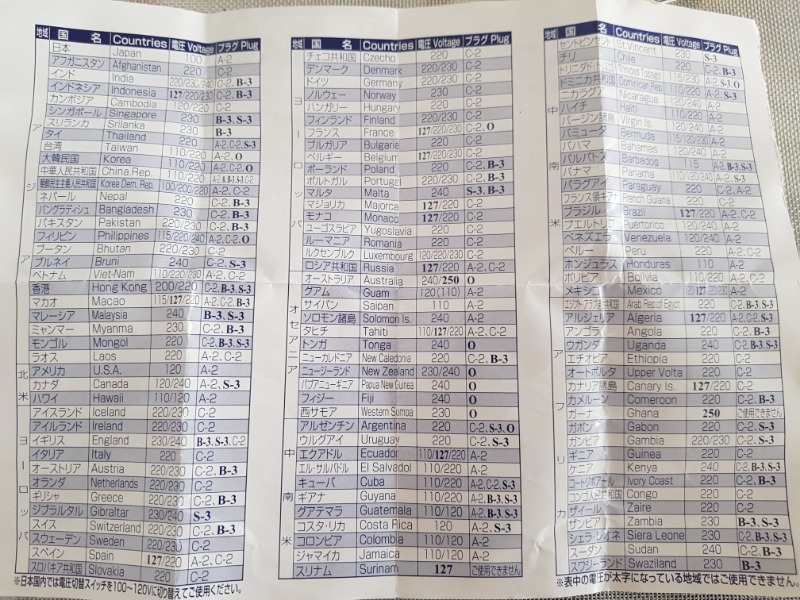 地域 国名 Countries 電圧 Voltage プラグ Plug
アジア
日本 Japan 100 A-2
アフガニスタン Afghanistan 220 C-2
インド India 220/230/240 C-2、B-3
インドネシア Indonesia 127/220/230 C-2、B-3
カンボジア Cambodia 120/220 C-2
シンガポール Singapore 230 B-3、S-3
スリランカ Srilanka 230 B-3
タイ Thailand 220
台湾 Taiwan 110/220
大韓民国 Korea 110/220 A-2、O
中華人民共和国 China,Rep.
朝鮮民主主義人民共和国 Korea Dem. Rep. 100/200/220 A-2、C-2
ネパール Nepal 220 C-2、B-3
バングラディシュ Bangladesh 230 C-2、B-3
パキスタン Pakistan 230 C-2、B-3
フィリピン Philippines 115/220/240 A-2、C-2、O
ブータン Bhutan 220/230 C-2
ブルネイ Bruni 240 C-2、S-3
ベトナム Viet-Nam 110/220/230 A-2、C-2
香港 Hong Kong 200/220 C-2、B-3、S-3
マカオ Macao 115/127/220 A-2、C-2、B-3
マレーシア Malaysia 240 B-3、S-3
ミャンマー Myanma 230 C-2、B-3
モンゴル Mongol 220 C-2、B-3、S-3
ラオス Laos 220 A-2、C-2
北米
アメリカ U.S.A. 120 A-2
カナダ Canada 120/240 A-2、S-3
ハワイ Hawaii 110/120 A-2
ヨーロッパ
アイスランド Iceland 220/230 C-2
アイルランド Ireland 220/230 C-2
イギリス England 230/240 B-3、S-3、C-2
イタリア Italy 220 C-2
オーストリア Austria 220/230 C-2、B-3
オランダ Netherlands 220/230 C-2
ギリシャ Greece 220/230 C-2、B-3
ジブラルタル Gibraltar 230/240 S-3
スイス Switzerland 220/230 C-2、B-3
スウェーデン Sweden 220/230 C-2
スペイン Spain 127/220 A-2、C-2
スロバキア共和国 Slovakia 220 C-2
※日本国内では電圧切替スイッチを100~120Vに切り替えてご使用ください。
地域 国名 Countries 電圧 Voltage プラグ Plug
ヨーロッパ
チェコ共和国 Czecho 220 C-2
デンマーク Denmark 220/230 C-2
ドイツ Germany 220/230 C-2
ノルウェー Norway 230 C-2
ハンガリー Hungary 220 C-2
フィンランド Finland 220/230 C-2
フランス France 127/220/230 C-2、O
ブルガリア Bulgaria 220 C-2
ベルギー Belgium 127/220/230 C-2
ポーランド Poland 220 C-2、B-3
ポルトガル Portugal 220/230 C-2、B-3
マルタ Malta 240 S-3、B-3
マジョリカ Majorca 127/220 C-2
モナコ Monaco 127/220 C-2
ユーゴスラビア Yugoslavia 220 C-2
ルーマニア Romania 220 C-2
ルクセンブルク Luxembourg 120/220/230 C-2
ロシア共和国 Russia 127/220 A-2、C-2
オセアニア
オーストラリア Australia 240/250 O
グアム Guam 120(110) A-2
サイパン Saipan 110 A-2
ソロモン諸島 Solomon Is. 240 A-2
タヒチ Tahiti 110/127/220 A-2、C-2
トンガ Tonga 240 O
ニューカレドニア New Caledonia 220 C-2、B-3
ニュージーランド New Zealand 230/240 O
パプアニューギニア Papua New Guinea 240 O
フィジー Fiji 240 O
西サモア Western Somoa 230 O
中南米
アルゼンチン Argentina 220 C-2、S-3、O
ウルグアイ Uruguay 220 C-2、S-3
エクアドル Ecuador 110/127/220 A-2
エル・サルバドル El Salvador 110/220 A-2
キューバ Cuba 110/220 A-2、B-3、S-3
ギアナ Guyana 110/220 A-2、B-3、S-3
グアテマラ Guatemala 110/120 A-2、B-3、S-3
コスタ・リカ Costa Rica 120 A-2、S-3
コロンビア Colombia 110/120 A-2
ジャマイカ Jamaica 110/120 A-2
スリナム Surinam 127 ご使用できません
地域 国名 Countries 電圧 Voltage プラグ Plug
中南米
セントビンセント St Vincent 230
チリ Chile 220 C-2、B-3
トリニダード・トバゴ 115/230
ドミニカ共和国 Dominican Rep. 110/220 A-2
ニカラグア Nicaragua 120/240 A-2
ハイチ Haiti 110/220 A-2
バージン諸島 Virgin Is. 120 A-2
バミューダ Bermuda
バハマ Bahamas 120/240 A-2
バルバドス Barbados 115 A-2、B-3、S-3
パナマ Panama 110/120 A-2
パラグアイ Paraguay 220 C-2、A-2
フランス領ギアナ French Guiana 220 C-2
ブラジル Brazil 127/220 A-2、C-2
プエルトリコ Puertorico A-2
ベネズエラ Venezuela 120/240 A-2
ペルー Peru 220 A-2、C-2
ホンジュラス Honduras 110 A-2
ボリビア Bolivia A-2、C-2
メキシコ Mexico A-2
アフリカ
エジプト・アラブ共和国 Arab Rep.of Egypt 220 C-2、B-3、S-3
アルジェリア Algeria 127/220 A-2、C-2、S-3
アンゴラ Angola 220 C-2、B-3
ウガンダ Uganda 240 C-2、B-3、S-3
エチオピア Ethiopia 220 C-2
オートボルタ Upper Volta 220 C-2
カナリア諸島 Canary Is. 127/220 C-2
カメルーン Comeroon 220 C-2、B-3
ガーナ Ghana 250 ご使用できません
ガボン Gabon 220 C-2、S-3
ガンビア Gambia 220/230 C-2、S-3
ギニア Guinea 220 C-2
ケニア Kenya 240 C-2、B-3、S-3
コートジボアール Ivory Coast 220 C-2、B-3
コンゴ人民共和国 Congo 220 C-2
ザイール Zaire 220 C-2
ザンビア Zambia 230 B-3、S-3
シェラ・レオネ Siera Leone 230 C-2、B-3、S-3
スーダン Sudan 240 C-2、B-3
スワジーランド Swaziland 230 B-3
※表中の電圧が太字になっている地域ではご使用できません。